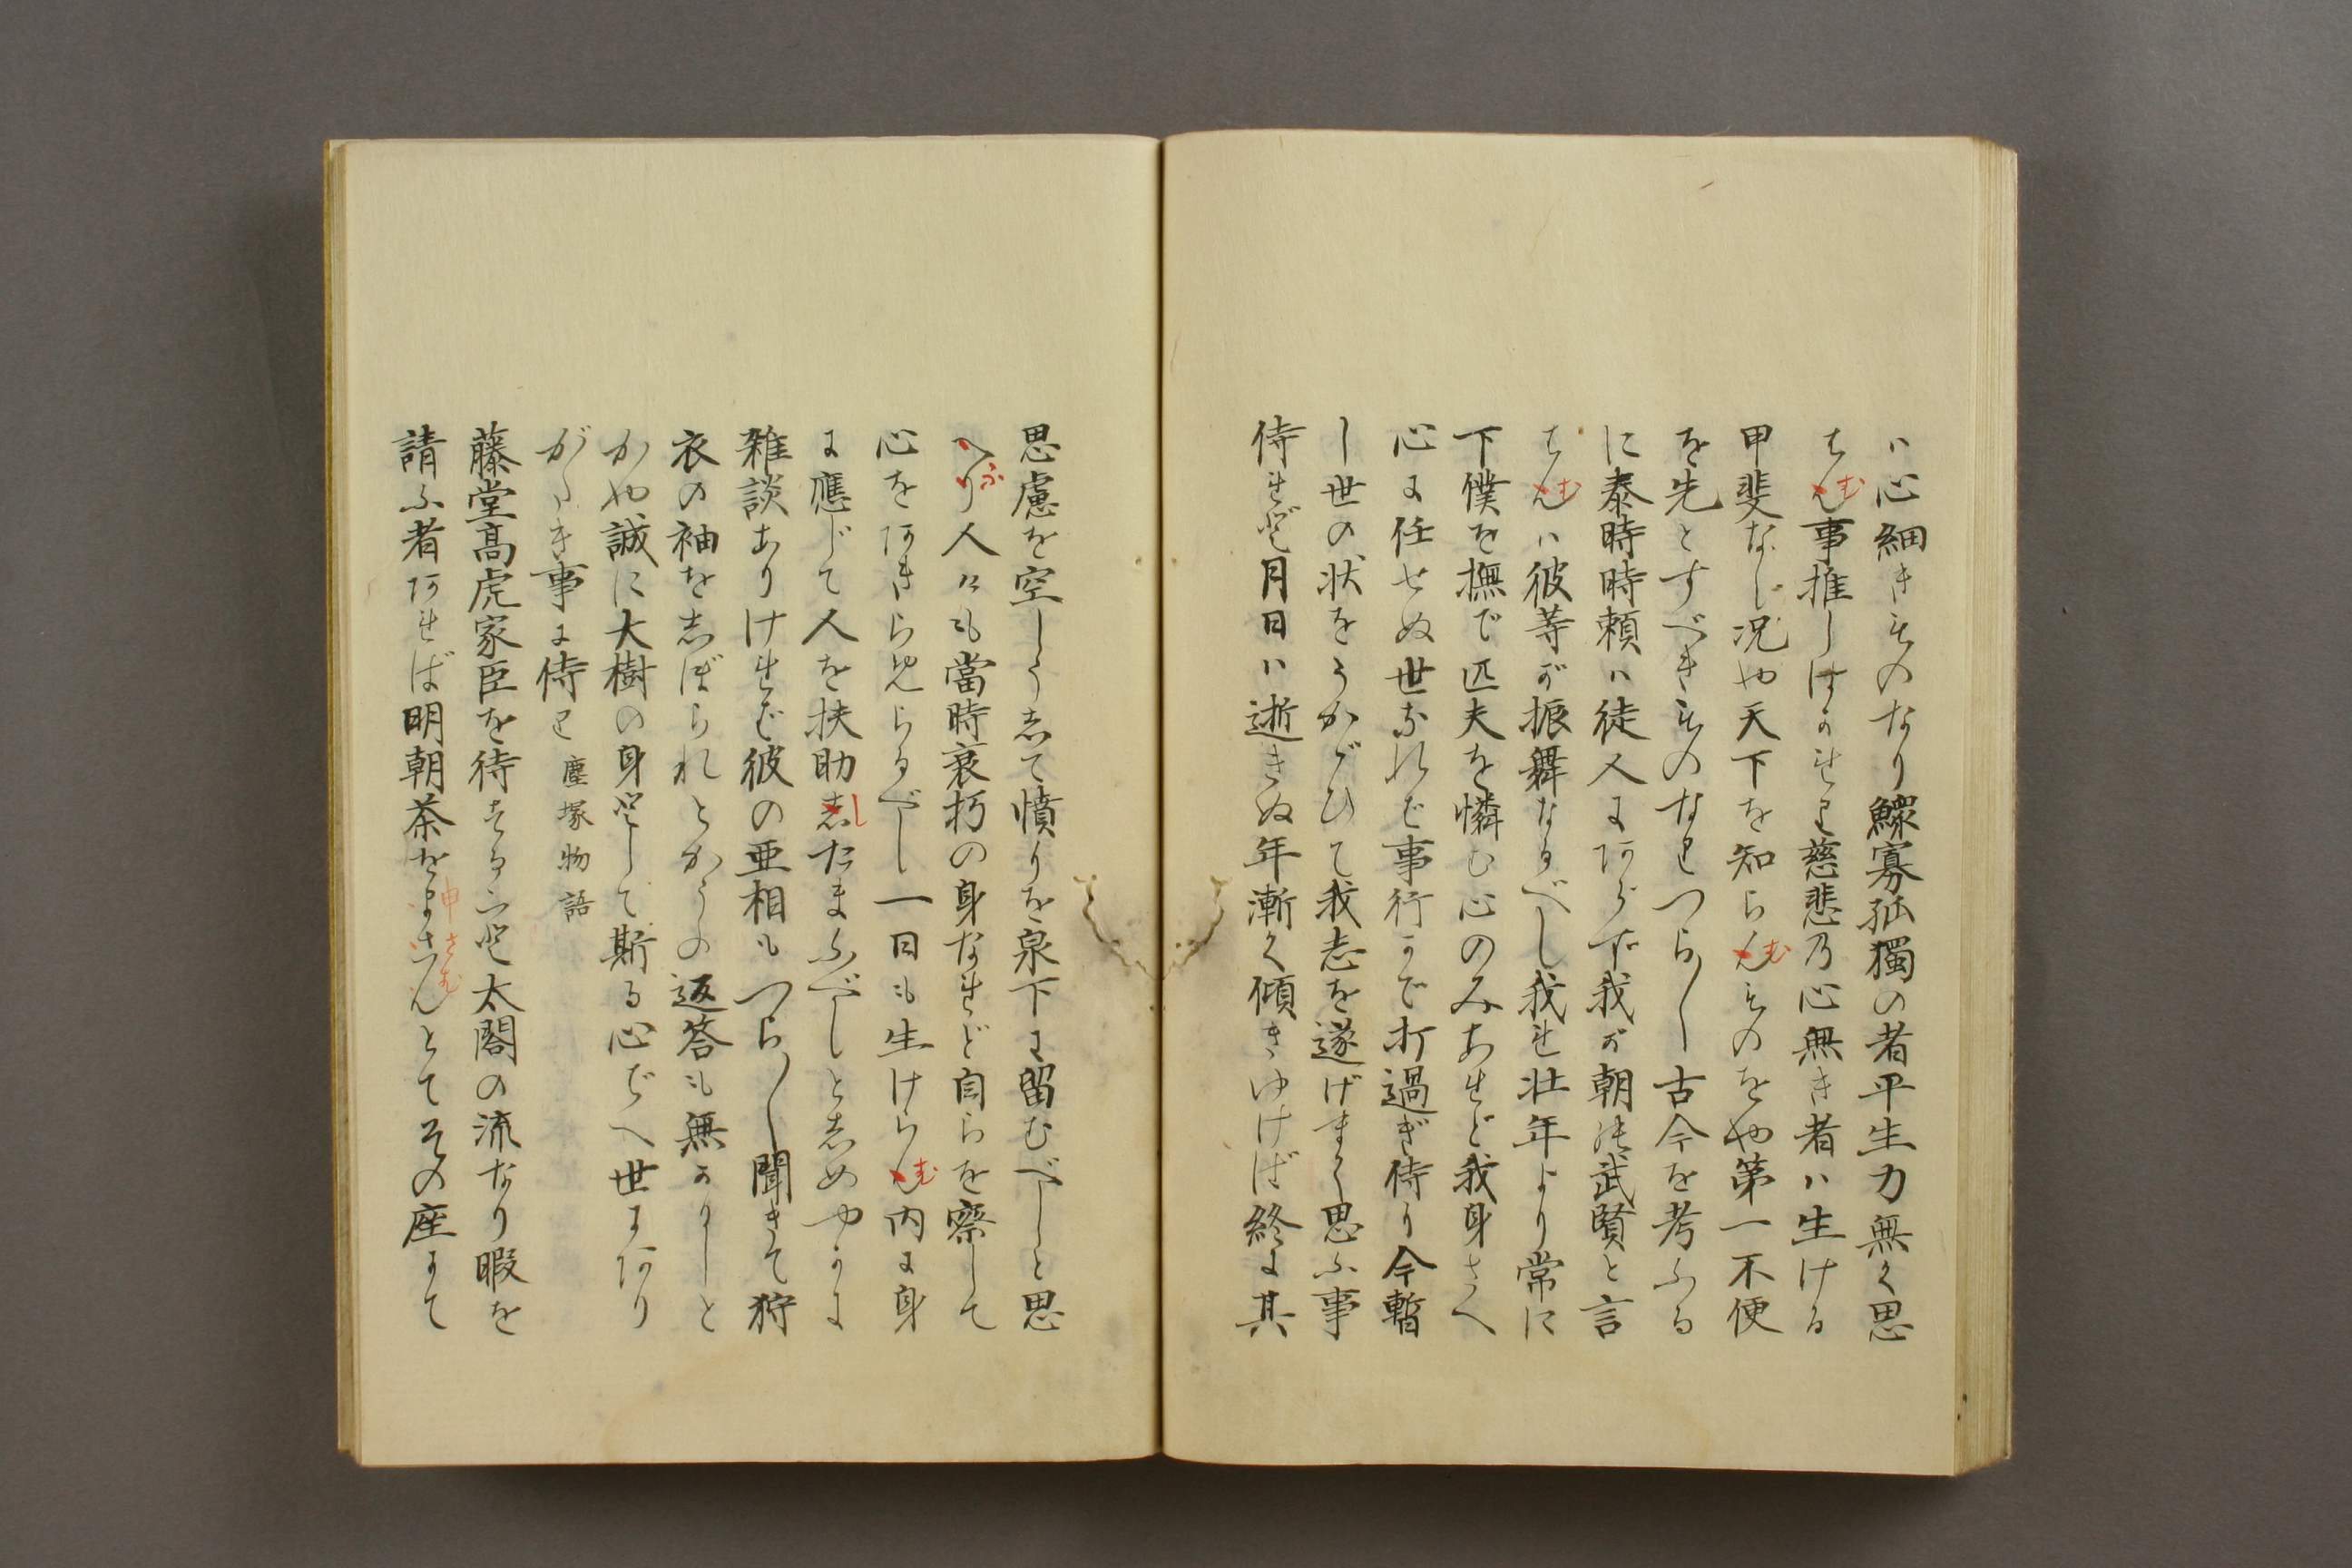 ハ心細きものなり鰥寡孤獨の者平生力無く思
はん事推しはかれり慈悲乃心無き者ハ生ける
む
甲斐なし况や天下を知らんものをや第一不便
む
を先とすべきものなりつら〳〵古今を考ふる
に泰時時頼ハ徒人にあらず我が朝の武賢と言
はんハ彼等が振舞なるべし我れ壮年より常に
む
下僕を撫で匹夫を憐む心のみあれど我身さへ
心に任せぬ世なれば事行かで打過ぎ侍り今暫
し世の状をうかゞひて我志を遂げまく思ふ事
侍れど月日ハ逝きぬ年漸く傾きゆけば終に其
思慮を空しうして憤りを泉下に留むべしと思
へり人々も當時衰朽の身なれど自らを察して
ふ
心をあきらめらるべし一日も生けらん内に身
む
に應じて人を扶助したまふべしとしめやかに
し
雑談ありければ彼の亜相もつら〳〵聞きて狩
衣の袖をしぼられとかうの返答も無かりしと
かや誠に大樹の身として斯る心ばへ世にあり
がたき事に侍り 塵塚物語
藤堂高虎家臣を待する六と太閤の流なり暇を
請ふ者あれば明朝茶をまさんとてその座にて
申さむ